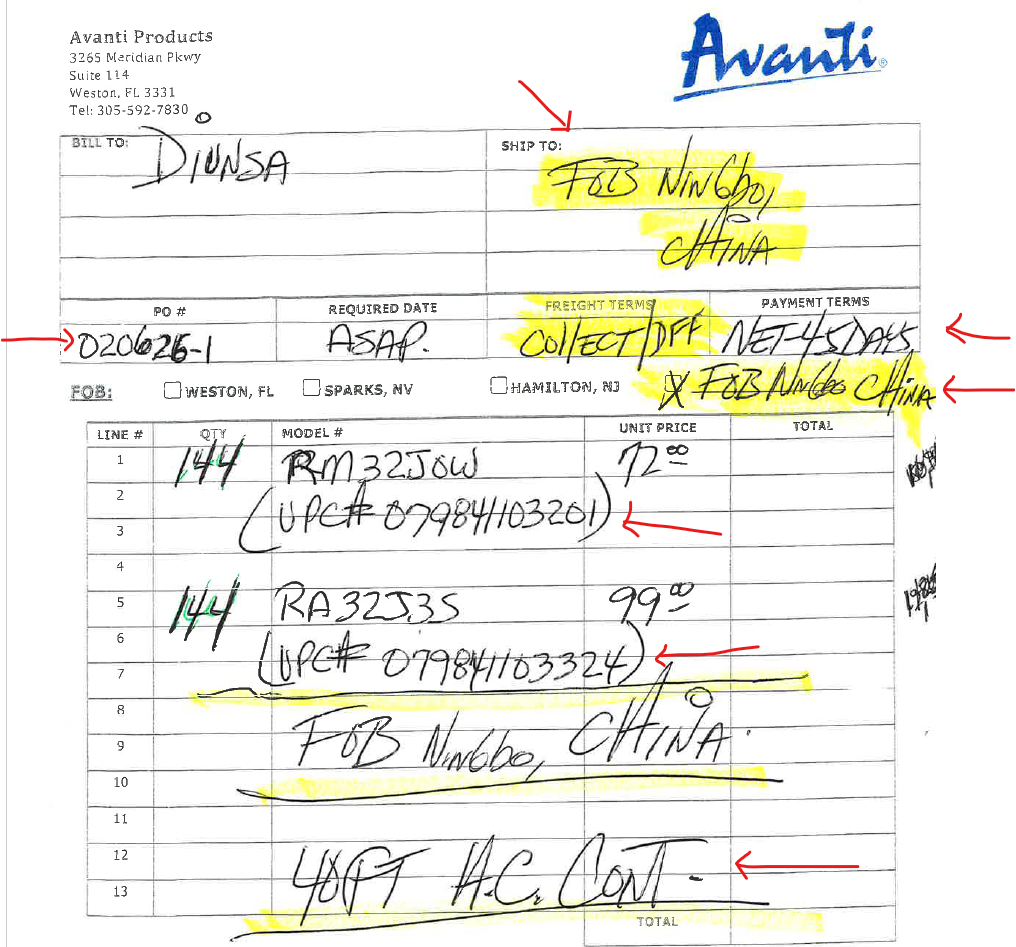 Avanti Products
3265 Meridian Pkwy
Suite 114
Weston, FL 3331
Tel: 305-592-7830
Avanti®
BILL TO: DIUNSA
SHIP TO: FOB NINGbo,
CHINA
PO # REQUIRED DATE FREIGHT TERMS PAYMENT TERMS
020626-1 ASAP. COllECT/DFF NET-45 DAYS
FOB: WESTON, FL SPARKS, NV HAMILTON, NJ X FOB NINGbo CHINA
LINE # QTY MODEL # UNIT PRICE TOTAL
1 144 RM32J0W 72.00
2
(UPC# 079841103201)
3
4
5 144 RA32J3S 99.00
6
(UPC# 079841103324)
7
8
FOB NINGbo, CHINA.
9
10
11
12
40FT H.C. CONT-
13
TOTAL